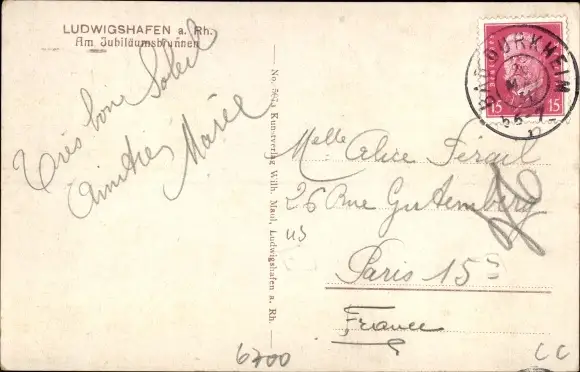 LUDWIGSHAFEN a. Rh.
Am Jubiläumsbrunnen
Très bon Soleil
Amitiés Marie
No. Kunstverlag Wilh. Maul, Ludwigshafen a. Rh.
15 15
BAD DÜRKHEIM
Melle Alice
26 Rue Gutemberg
Paris 15
France
6700
CC